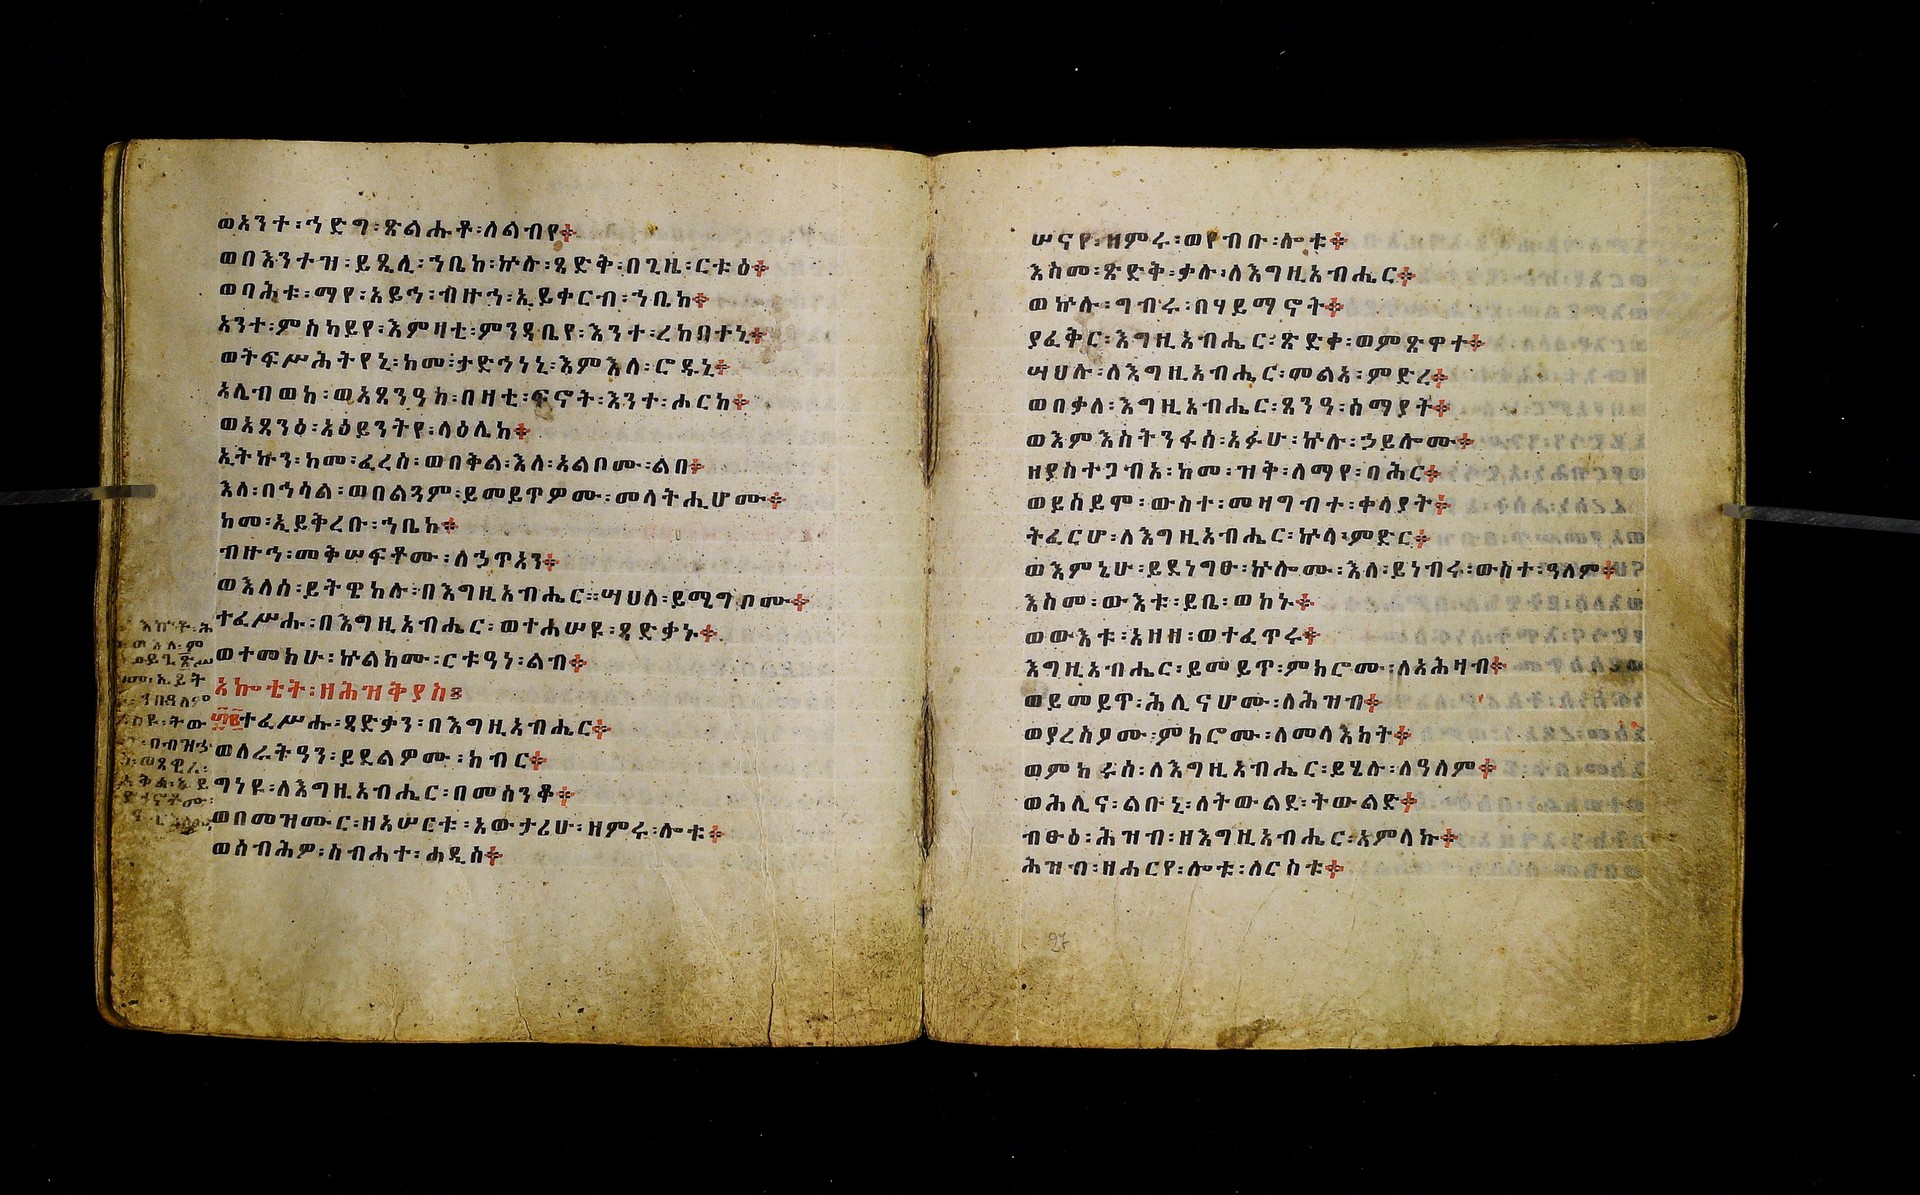 ወአንተ፡ኀድግ፡ጽልሑቶ፡ለልብየ፨
ወበእንተዝ፡ይጼሊ፡ኀቤከ፡ኵሉ፡ጻድቅ፡በጊዜ፡ርቱዕ፨
ወባሕቱ፡ማየ፡አይኅ፡ብዙኅ፡ኢይቀርብ፡ኀቤከ፨
አንተ፡ምስካይየ፡እምዛቲ፡ምንዳቤየ፡እንተ፡ረከበተኒ፨
ወትፍሥሕትየኒ፡ከመ፡ታድኅነኒ፡እምእለ፡ሮዱኒ፨
አሌብወከ፡ወአጸንዓከ፡በዛቲ፡ፍኖት፡እንተ፡ሖርከ፨
ወአጸንዕ፡አዕይንትየ፡ላዕሌከ፨
ኢትኩን፡ከመ፡ፈረስ፡ወበቅል፡እለ፡አልቦሙ፡ልበ፨
እለ፡በኀሳል፡ወበልጓም፡ይመይጥዎሙ፡መላትሒሆሙ፨
ከመ፡ኢይቅረቡ፡ኀቤከ፨
ብዙኅ፡መቅሠፍቶሙ፡ለኃጥአን፨
ወእለሰ፡ይትዌከሉ፡በእግዚአብሔር፡ሣህለ፡ይሜግቦሙ፨
ተፈሥሑ፡በእግዚአብሔር፡ወተሐሠዩ፡ጻድቃኑ፨
ወተመክሁ፡ኵልክሙ፡ርቱዓነ፡ልብ፨
አኰቴት፡ዘሕዝቅያስ፨
፴፪ተፈሥሑ፡ጻድቃን፡በእግዚአብሔር፨
ወለራትዓን፡ይደልዎሙ፡ክብር፨
ግነዩ፡ለእግዚአብሔር፡በመሰንቆ፨
ወበመዝሙር፡ዘአሠርቱ፡አውታሪሁ፡ዘምሩ፡ሎቱ፨
ወሰብሕዎ፡ስብሐተ፡ሐዲስ፨
ሠናየ፡ዘምሩ፡ወየብቡ፡ሎቱ፨
እስመ፡ጽድቅ፡ቃሉ፡ለእግዚአብሔር፨
ወኵሉ፡ግብሩ፡በሃይማኖት፨
ያፈቅር፡እግዚአብሔር፡ጽድቀ፡ወምጽዋተ፨
ሣህሉ፡ለእግዚአብሔር፡መልአ፡ምድረ፨
ወበቃለ፡እግዚአብሔር፡ጸንዓ፡ሰማያት፨
ወእምእስትንፋሰ፡አፉሁ፡ኵሉ፡ኃይሎሙ፨
ዘያስተጋብአ፡ከመ፡ዝቅ፡ለማየ፡ባሕር፨
ወይሰይሞ፡ውስተ፡መዛግብተ፡ቀላያት፨
ትፈርሆ፡ለእግዚአብሔር፡ኵላ፡ምድር፨
ወእምኒሁ፡ይደነግፁ፡ኵሎሙ፡እለ፡ይነብሩ፡ውስተ፡ዓለም፨
እስመ፡ውእቱ፡ይቤ፡ወኮኑ፨
ወውእቱ፡አዘዘ፡ወተፈጥሩ፨
እግዚአብሔር፡ይመይጥ፡ምክሮሙ፡ለአሕዛብ፨
ወይመይጥ፡ሕሊናሆሙ፡ለሕዝብ፨
ወያረስዖሙ፡ምክሮሙ፡ለመላእክት፨
ወምክሩሰ፡ለእግዚአብሔር፡ይሄሉ፡ለዓለም፨
ወሕሊና፡ልቡኒ፡ለትውልደ፡ትውልድ፨
ብፁዕ፡ሕዝብ፡ዘእግዚአብሔር፡አምላኩ፨
ሕዝብ፡ዘሐርየ፡ሎቱ፡ለርስቱ፨
27